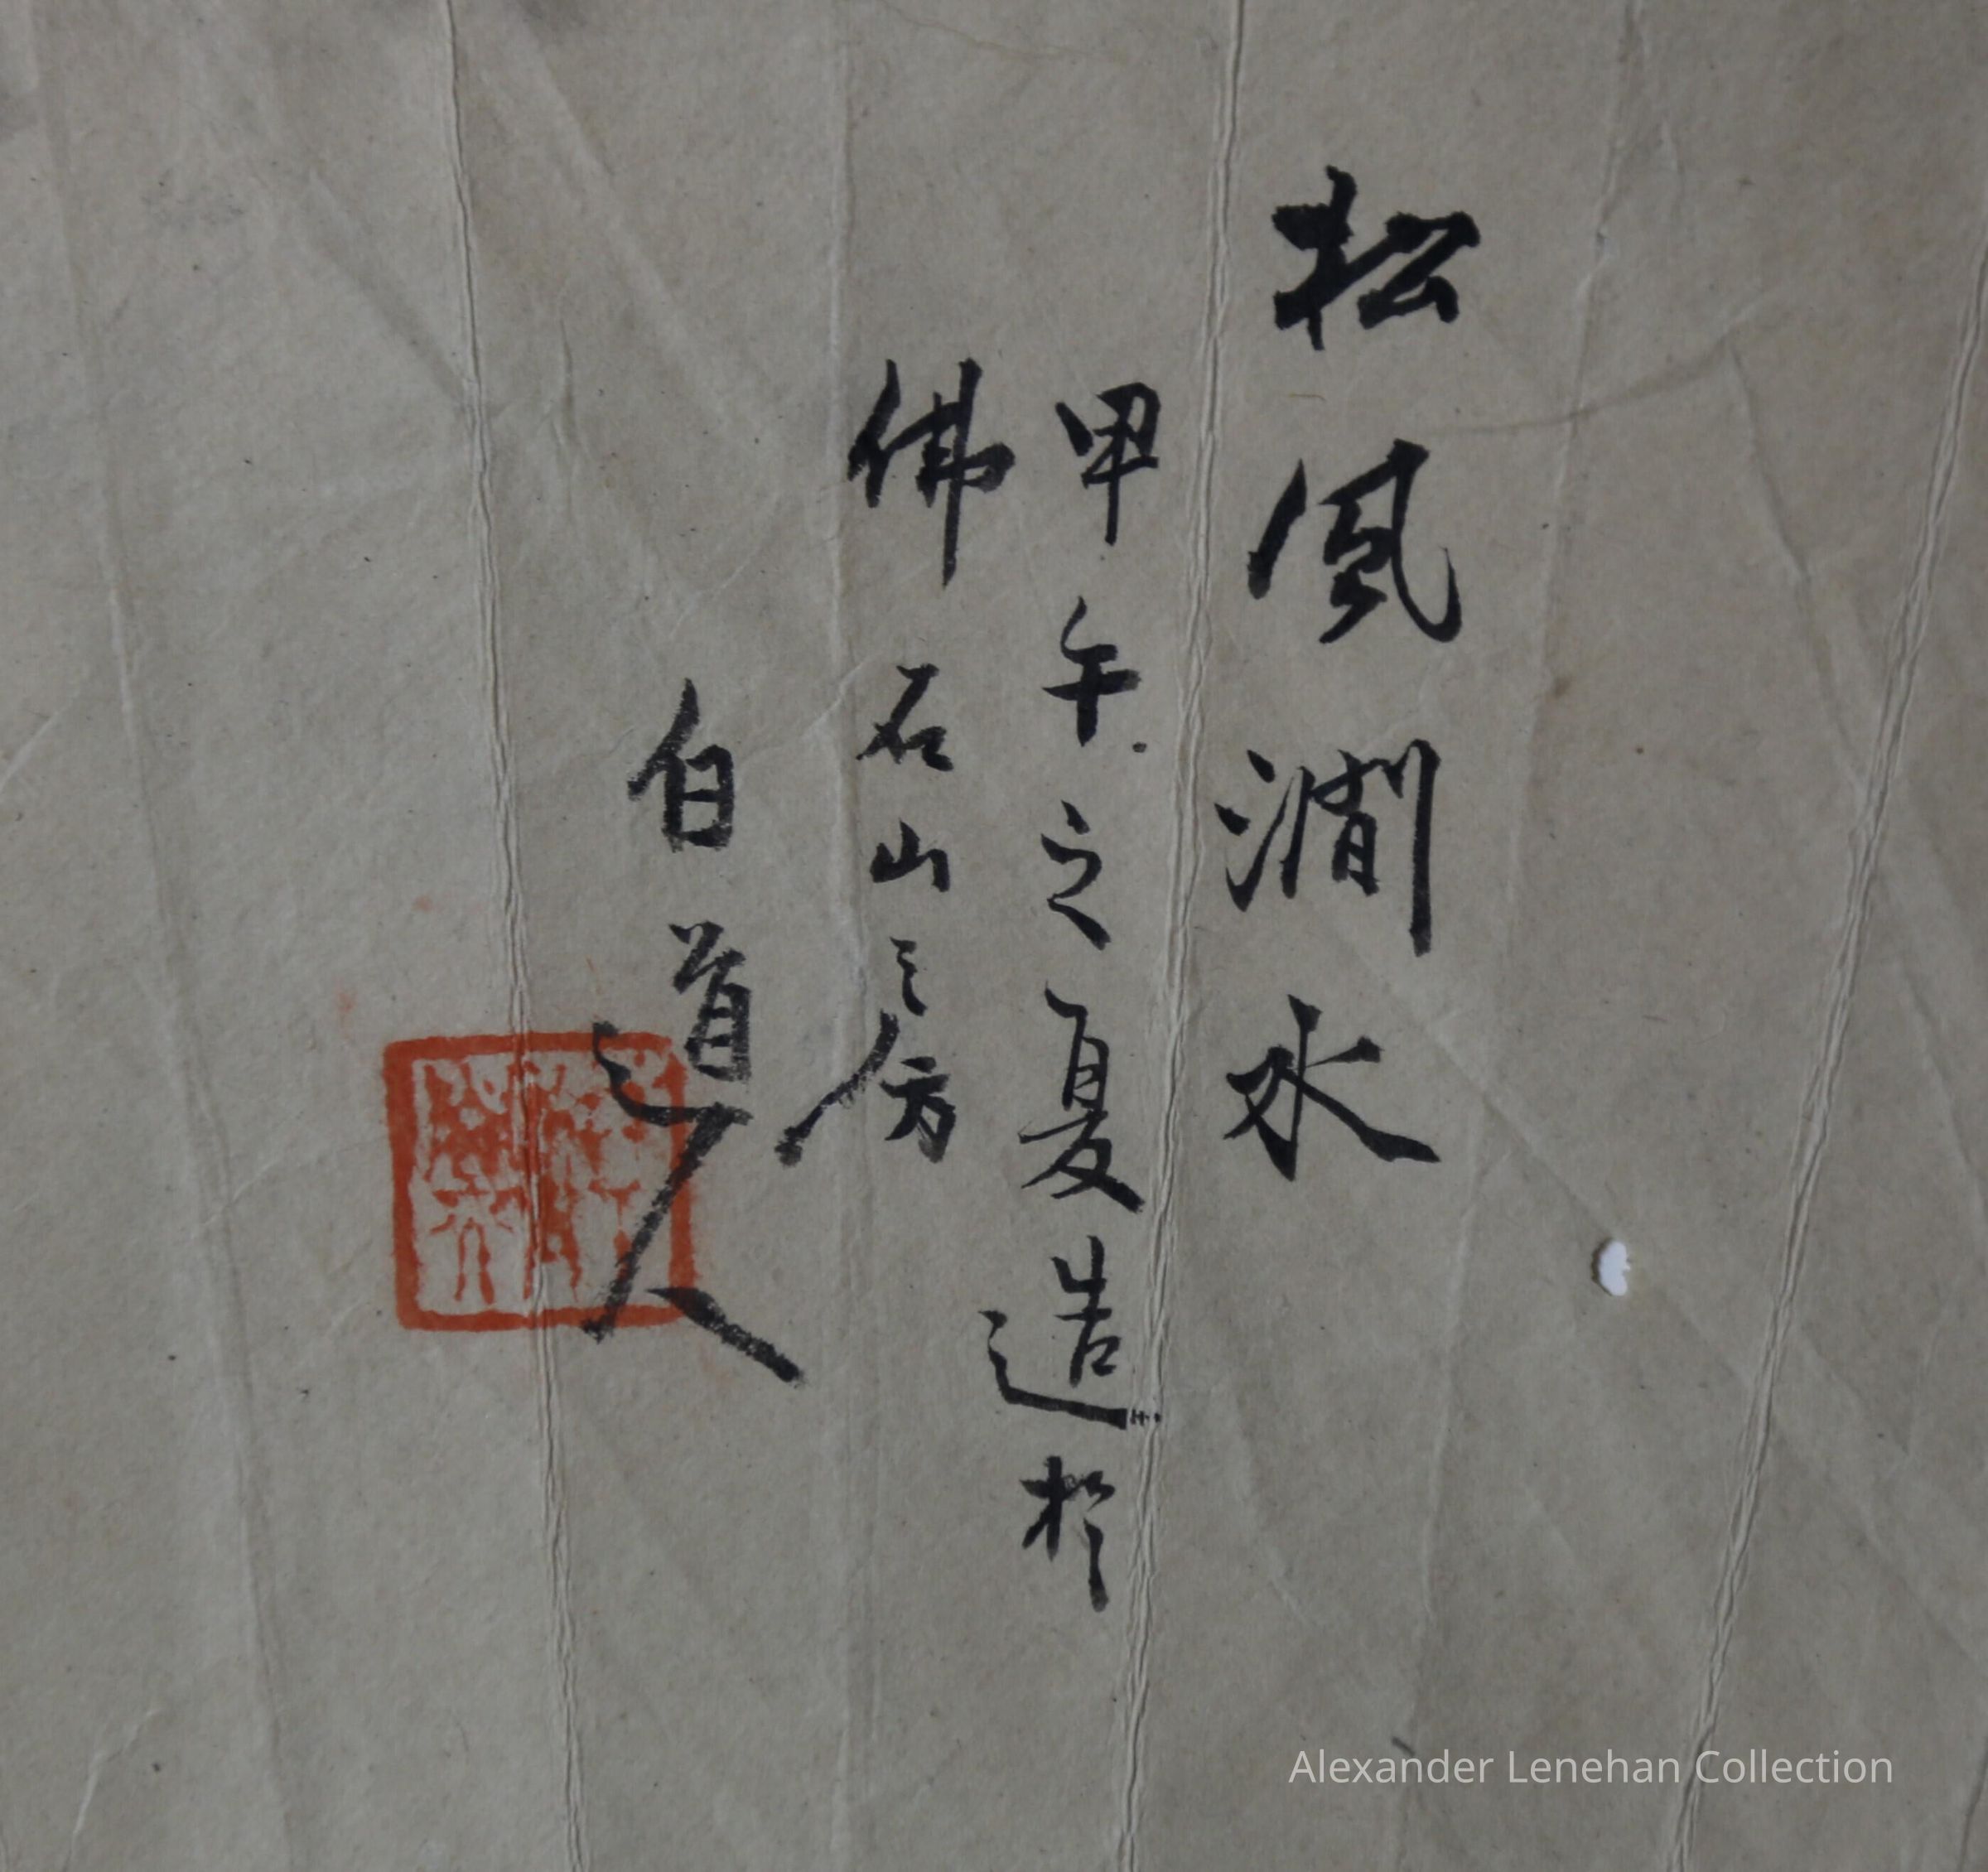 松風澗水
甲午之夏造於
佛石山之房
白道人
Alexander Lenehan Collection